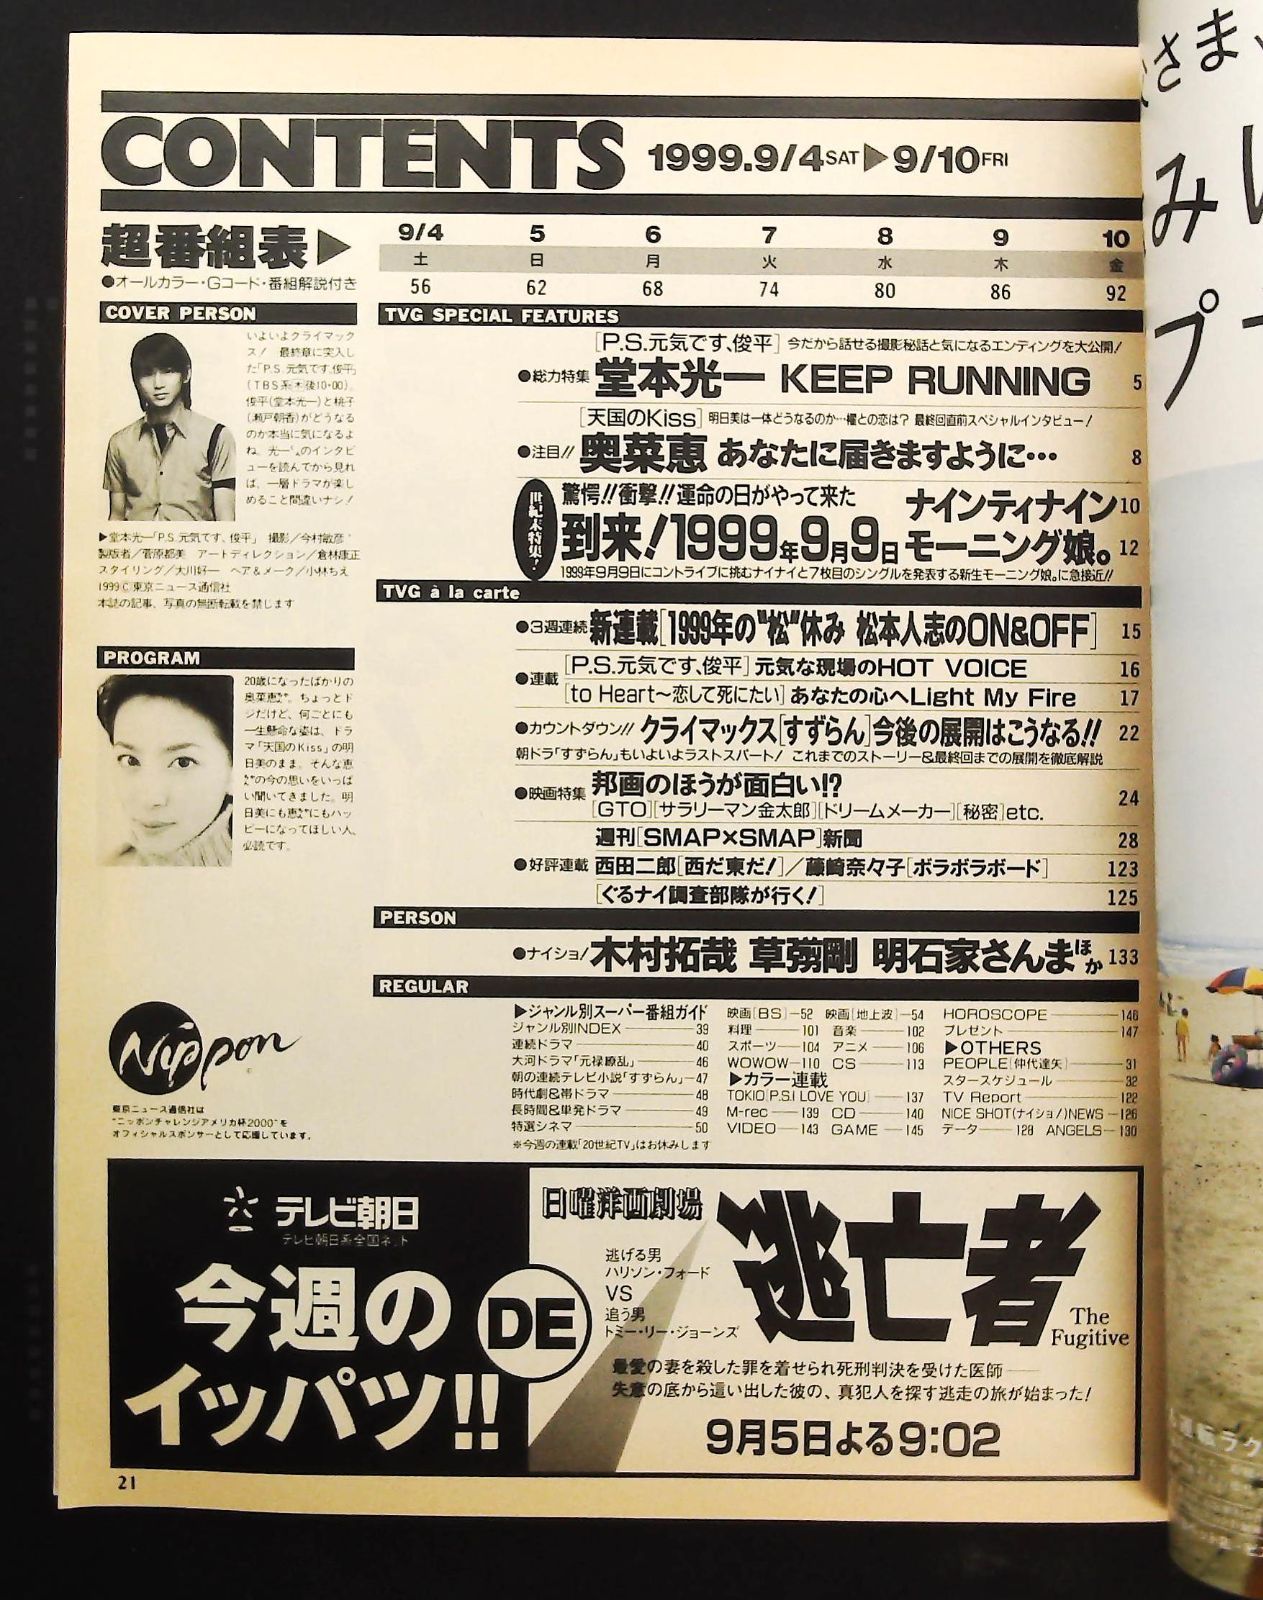 CONTENTS 1999.9/4SAT▶9/10FRI
超番組表▶
●オールカラー・Gコード・番組解説付き
9/4 5 6 7 8 9 10
土 日 月 火 水 木 金
56 62 68 74 80 86 92
COVER PERSON
いよいよクライマック
ス! 最終章に突入し
た「P.S.元気です、俊平」
(TBS系木後10・00)。
俊平(堂本光一)と桃子
(瀬戸朝香)がどうなる
のか本当に気になるよ
ね。光一くんのインタビ
ューを読んでから見れ
ば、一層ドラマが楽し
めること間違いナシ!
▶堂本光一「P.S.元気です、俊平」 撮影/今村敏彦
製版者/菅原都美 アートディレクション/倉林康正
スタイリング/大川好一 ヘア&メーク/小林ちえ
1999©東京ニュース通信社
本誌の記事、写真の無断転載を禁じます
PROGRAM
20歳になったばかりの
奥菜恵ちゃん。ちょっとド
ジだけど、何ごとにも
一生懸命な姿は、ドラ
マ「天国のKiss」の明
日美のまま。そんな恵
ちゃんの今の思いをいっぱ
い聞いてきました。明
日美にも恵ちゃんにもハッ
ピーになってほしい人、
必読です。
Nippon
東京ニュース通信社は
"ニッポンチャレンジアメリカ杯2000"を
オフィシャルスポンサーとして応援しています。
TVG SPECIAL FEATURES
[P.S.元気です、俊平] 今だから話せる撮影秘話と気になるエンディングを大公開!
●総力特集 堂本光一 KEEP RUNNING 5
[天国のKiss] 明日美は一体どうなるのか…櫂との恋は? 最終回直前スペシャルインタビュー!
●注目!! 奥菜恵 あなたに届きますように… 8
世紀末特集!
驚愕!!衝撃!!運命の日がやって来た ナインティナイン 10
到来!1999年9月9日 モーニング娘。 12
1999年9月9日にコントライブに挑むナイナイと7枚目のシングルを発表する新生モーニング娘。に急接近!!
TVG à la carte
●3週連続 新連載[1999年の"松"休み 松本人志のON&OFF] 15
●連載 [P.S.元気です、俊平] 元気な現場のHOT VOICE 16
[to Heart〜恋して死にたい] あなたの心へLight My Fire 17
●カウントダウン!! クライマックス[すずらん]今後の展開はこうなる!! 22
朝ドラ「すずらん」もいよいよラストスパート! これまでのストーリー&最終回までの展開を徹底解説
●映画特集 邦画のほうが面白い!? 24
[GTO][サラリーマン金太郎][ドリームメーカー][秘密]etc.
週刊[SMAP×SMAP]新聞 28
●好評連載 西田二郎[西だ東だ!]/藤崎奈々子[ボラボラボード] 123
[ぐるナイ調査部隊が行く!] 125
PERSON
●ナイショ! 木村拓哉 草彅剛 明石家さんまほか 133
REGULAR
▶ジャンル別スーパー番組ガイド
ジャンル別INDEX 39
連続ドラマ 40
大河ドラマ「元禄繚乱」 46
朝の連続テレビ小説「すずらん」 47
時代劇&帯ドラマ 48
長時間&単発ドラマ 49
特選シネマ 50
※今週の連載「20世紀TV」はお休みします
映画[BS] 52 映画[地上波] 54
料理 101 音楽 102
スポーツ 104 アニメ 106
WOWOW 110 CS 113
▶カラー連載
TOKIO[P.S.I LOVE YOU] 137
M-rec 139 CD 140
VIDEO 143 GAME 145
HOROSCOPE 146
プレゼント 147
▶OTHERS
PEOPLE[仲代達矢] 31
スタースケジュール 32
TV Report 122
NICE SHOT(ナイショ!)NEWS 126
データ 128 ANGELS 130
テレビ朝日
テレビ朝日系全国ネット
今週の
イッパツ!!
DE
日曜洋画劇場
逃げる男
ハリソン・フォード
VS
追う男
トミー・リー・ジョーンズ
逃亡者
The
Fugitive
最愛の妻を殺した罪を着せられ死刑判決を受けた医師——
失意の底から這い出した彼の、真犯人を探す逃走の旅が始まった!
9月5日よる9:02
21
さま、
み
プ